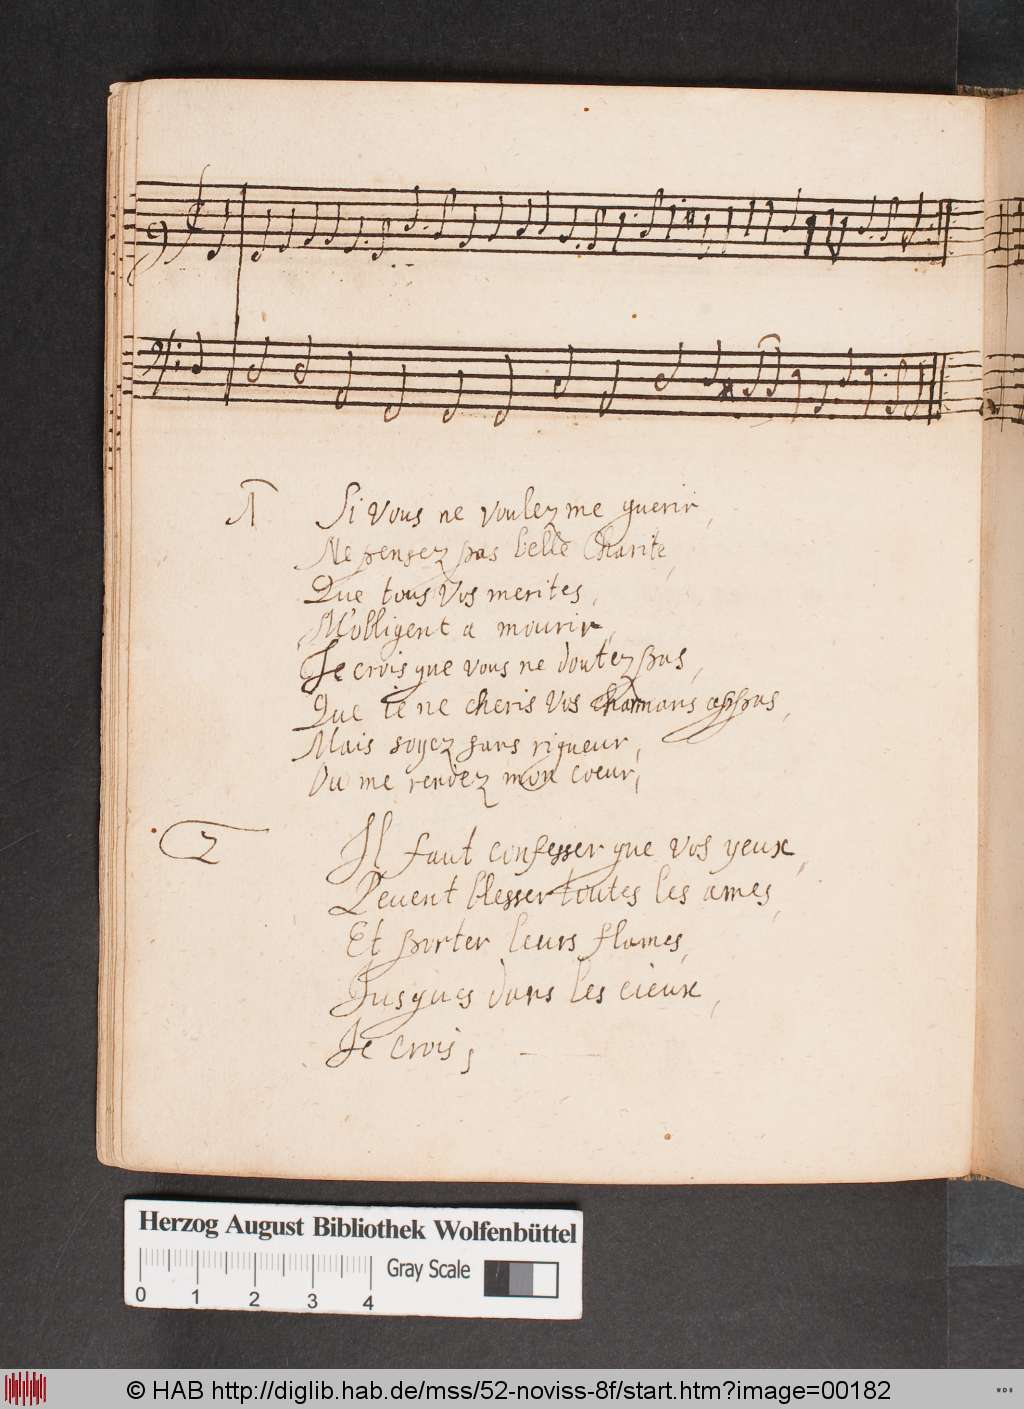 1 Si vous ne voulez me guerir,
Ne pensez pas belle Charite,
Que tous vos merites,
M'obligent a mourir,
Je crois que vous ne doutez pas,
Que ie ne cheris vos charmans appas,
Mais soyez sans rigueur,
Ou me rendez mon coeur,
2 Il faut confesser que vos yeux,
Peuent blesser toutes les ames,
Et porter leurs flames,
Jusques dans les cieux,
Je crois,
Herzog August Bibliothek Wolfenbüttel
Gray Scale
0 1 2 3 4
© HAB http://diglib.hab.de/mss/52-noviss-8f/start.htm?image=00182